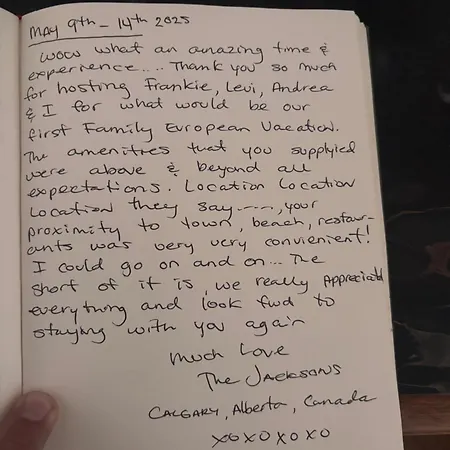 MAY 9th - 14th 2025
Wow what an amazing time &
experience.... Thank you so much
for hosting Frankie, Levi, Andrea
& I for what would be our
first Family European Vacation.
The amenities that you supplyied
were above & beyond all
expectations. Location Location
Location they say ----, your
proximity to town, beach, restaur-
ants was very very convienient!
I could go on and on... The
short of it is, we really Appreciatd
everything and look fwd to
staying with you again
Much Love
The Jacksons
CALGARY, Alberta, Canada
XOXOXOXO